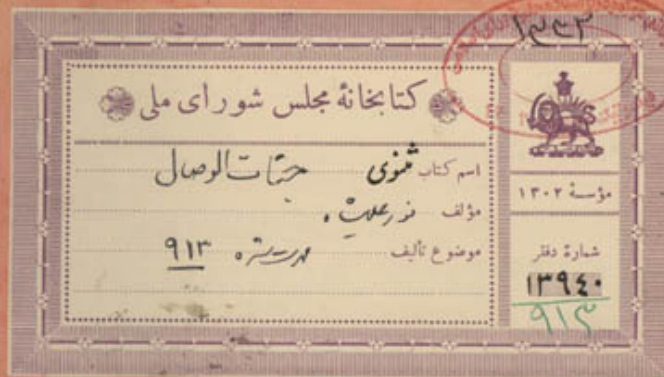 ۱۳۳۲
کتابخانهٔ مجلس شورای ملی
اسم کتاب مثنوی جنات الوصال
مؤلف نورعلیشاه
موضوع تألیف ۹۱۳
مؤسسهٔ ۱۳۰۲
شمارهٔ دفتر
۱۳۹۴۰
۹۱۳